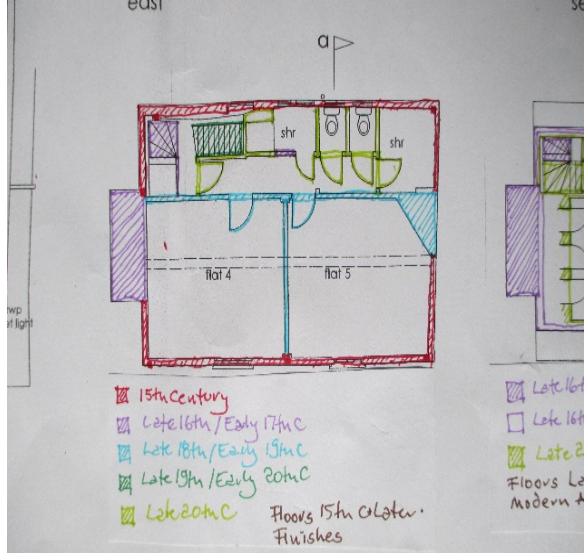 east
se
a
shr
shr
flat 4
flat 5
light
15th Century
Late 16th / Early 17th C
Late 18th / Early 19th C
Late 19th / Early 20th C
Late 20th C
Floors 15th C & Later.
Finishes
Late 16th
Late 16th
Late 2
Floors La
Modern